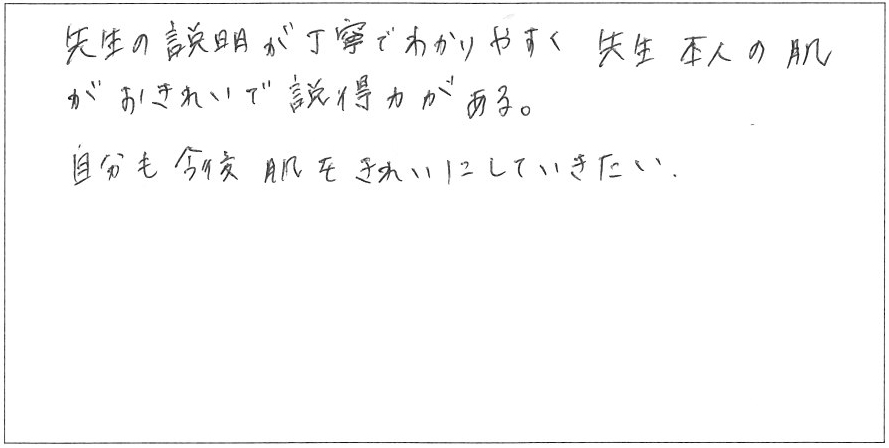 先生の説明が丁寧でわかりやすく 先生 本人の肌
がおきれいで説得力がある。
自分も今後 肌をきれいにしていきたい.